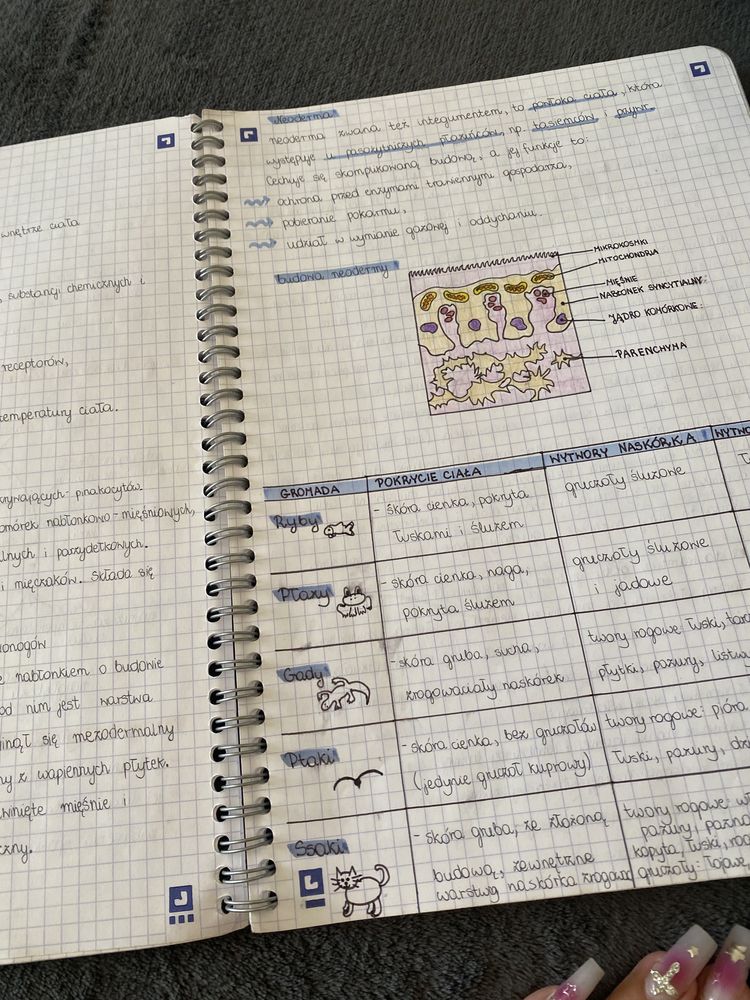 wnętrze ciała
substancji chemicznych i
receptorów,
temperatury ciała.
pinakocytów
nabłonkowo-mięśniowych,
i parzydełkowych.
i mięczaków. Składa się
nabłonkiem o budowie
od nim jest warstwa
się mezodermalny
z wapiennych płytek.
mięśnie i
Neoderma
neoderma zwana też integumentem, to powłoka ciała, która
występuje u pasożytniczych płazińców, np. tasiemców i przywr.
Cechuje się skomplikowaną budową, a jej funkcje to:
ochrona przed enzymami trawiennymi gospodarza,
pobieranie pokarmu,
udział w wymianie gazowej i oddychaniu.
budowa neodermy
MIKROKOSMKI
MITOCHONDRIA
MIĘŚNIE
NABŁONEK SYNCYTIALNY
JĄDRO KOMÓRKOWE
PARENCHYMA
GROMADA POKRYCIE CIAŁA WYTWORY NASKÓRKA
Ryby
- skóra cienka, pokryta
łuskami i śluzem
gruczoły śluzowe
Płazy
- skóra cienka, naga,
pokryta śluzem
gruczoły śluzowe
i jadowe
Gady
- skóra gruba, sucha,
zrogowaciały naskórek
twory rogowe: łuski,
płytki, pazury,
Ptaki
- skóra cienka, bez gruczołów
(jedynie gruczoł kuprowy)
twory rogowe: pióra
łuski, pazury,
Ssaki
- skóra gruba, ze złożoną
budową, zewnętrzne
warstwy naskórka
twory rogowe:
pazury,
kopyta, łuski,
gruczoły: